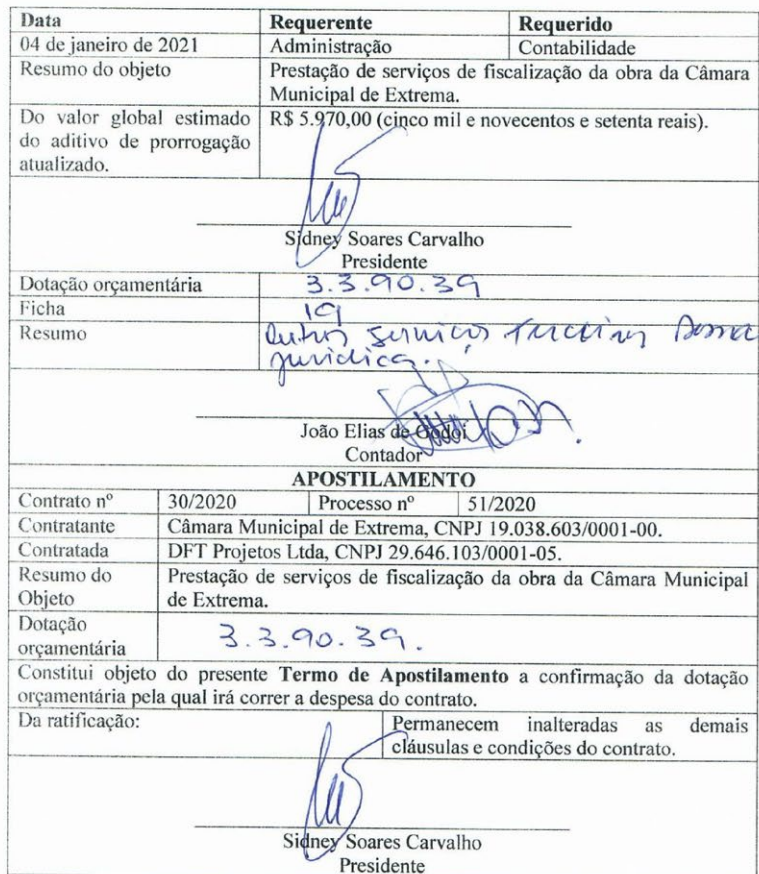 Data Requerente Requerido
04 de janeiro de 2021 Administração Contabilidade
Resumo do objeto Prestação de serviços de fiscalização da obra da Câmara
Municipal de Extrema.
Do valor global estimado R$ 5.970,00 (cinco mil e novecentos e setenta reais).
do aditivo de prorrogação
atualizado.
Sidney Soares Carvalho
Presidente
Dotação orçamentária 3.3.90.39
Ficha 19
Resumo Outros serviços terceiros
jurídica.
João Elias de Godoi
Contador
APOSTILAMENTO
Contrato nº 30/2020 Processo nº 51/2020
Contratante Câmara Municipal de Extrema, CNPJ 19.038.603/0001-00.
Contratada DFT Projetos Ltda, CNPJ 29.646.103/0001-05.
Resumo do Prestação de serviços de fiscalização da obra da Câmara Municipal
Objeto de Extrema.
Dotação
orçamentária 3.3.90.39.
Constitui objeto do presente Termo de Apostilamento a confirmação da dotação
orçamentária pela qual irá correr a despesa do contrato.
Da ratificação: Permanecem inalteradas as demais
cláusulas e condições do contrato.
Sidney Soares Carvalho
Presidente